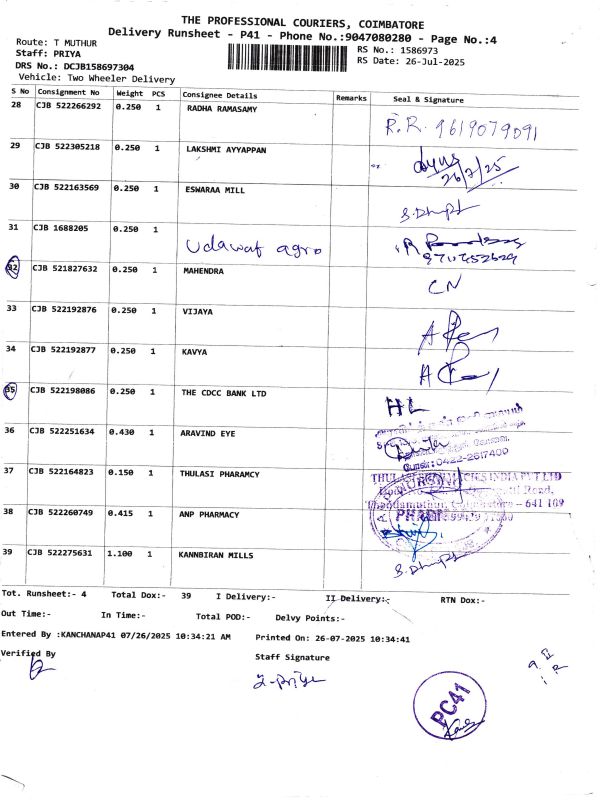 THE PROFESSIONAL COURIERS, COIMBATORE
Delivery Runsheet - P41 - Phone No.:9047080280 - Page No.:4
Route: T MUTHUR
Staff: PRIYA
DRS No.: DCJB158697304
Vehicle: Two Wheeler Delivery
RS No.: 1586973
RS Date: 26-Jul-2025
S No Consignment No Weight PCS Consignee Details Remarks Seal & Signature
28 CJB 522266292 0.250 1 RADHA RAMASAMY R.R. 9619079091
29 CJB 522305218 0.250 1 LAKSHMI AYYAPPAN
26/7/25
30 CJB 522163569 0.250 1 ESWARAA MILL
31 CJB 1688205 0.250 1 Udawat agro
32 CJB 521827632 0.250 1 MAHENDRA CN
33 CJB 522192876 0.250 1 VIJAYA
34 CJB 522192877 0.250 1 KAVYA
35 CJB 522198086 0.250 1 THE CDCC BANK LTD HL
36 CJB 522251634 0.430 1 ARAVIND EYE
0422-2617400
37 CJB 522164823 0.150 1 THULASI PHARAMCY
38 CJB 522260749 0.415 1 ANP PHARMACY
39 CJB 522275631 1.100 1 KANNBIRAN MILLS
Tot. Runsheet:- 4 Total Dox:- 39 I Delivery:- II Delivery:- RTN Dox:-
Out Time:- In Time:- Total POD:- Delvy Points:-
Entered By :KANCHANAP41 07/26/2025 10:34:21 AM Printed On: 26-07-2025 10:34:41
Verified By Staff Signature
PC41